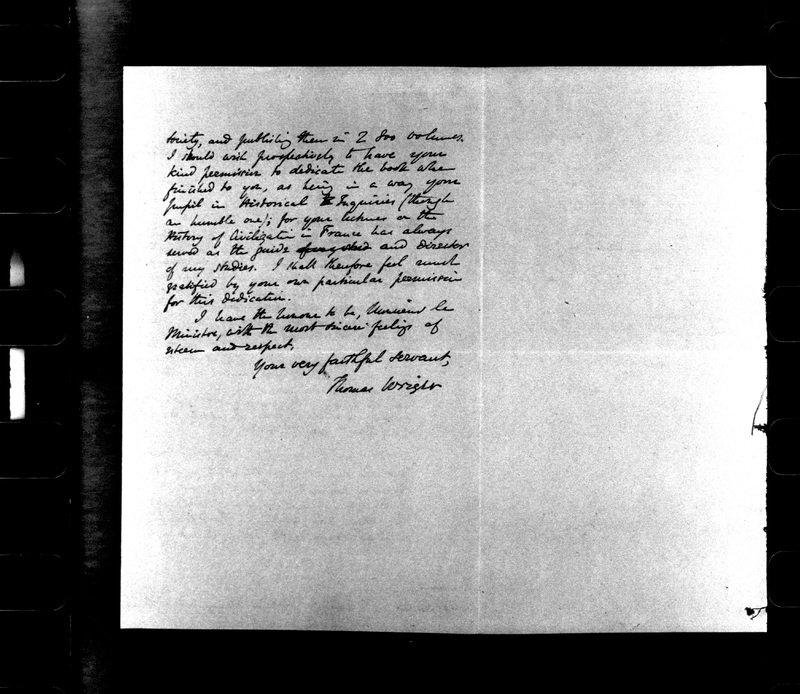 society, and publishing them in 2 8vo volumes.
I should wish prospectively to have your
kind permission to dedicate the book when
finished to you, as being in a way your
pupil in Historical Inquiries (though
an humble one); for your lectures on the
History of Civilization in France has always
served as the guide and director
of my studies. I shall therefore feel much
gratified by your own particular permission
for this dedication.
I have the honor to be, Monsieur le
Ministre, with the most sincere feelings of
esteem and respect,
Your very faithful servant,
Thomas Wright